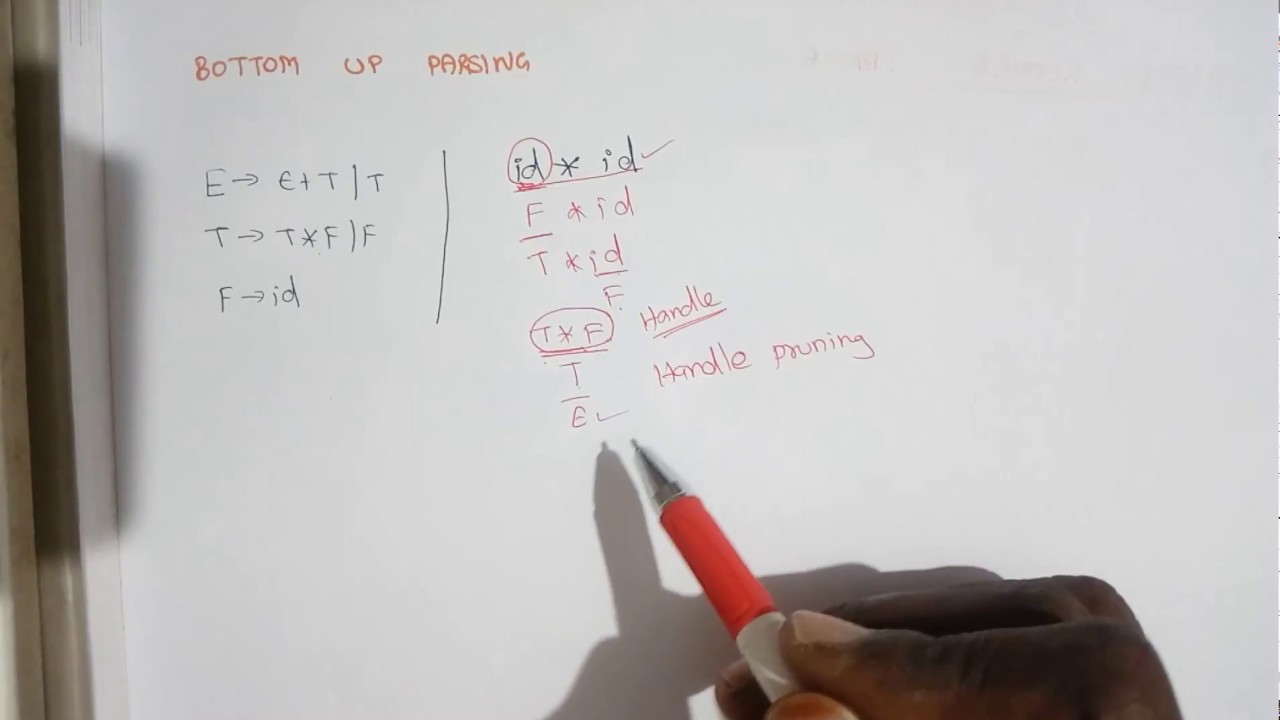 BOTTOM UP PARSING
E → E + T | T
T → T * F | F
F → id
id * id ✓
F * id
T * id
F
T * F Handle
T Handle pruning
E ✓